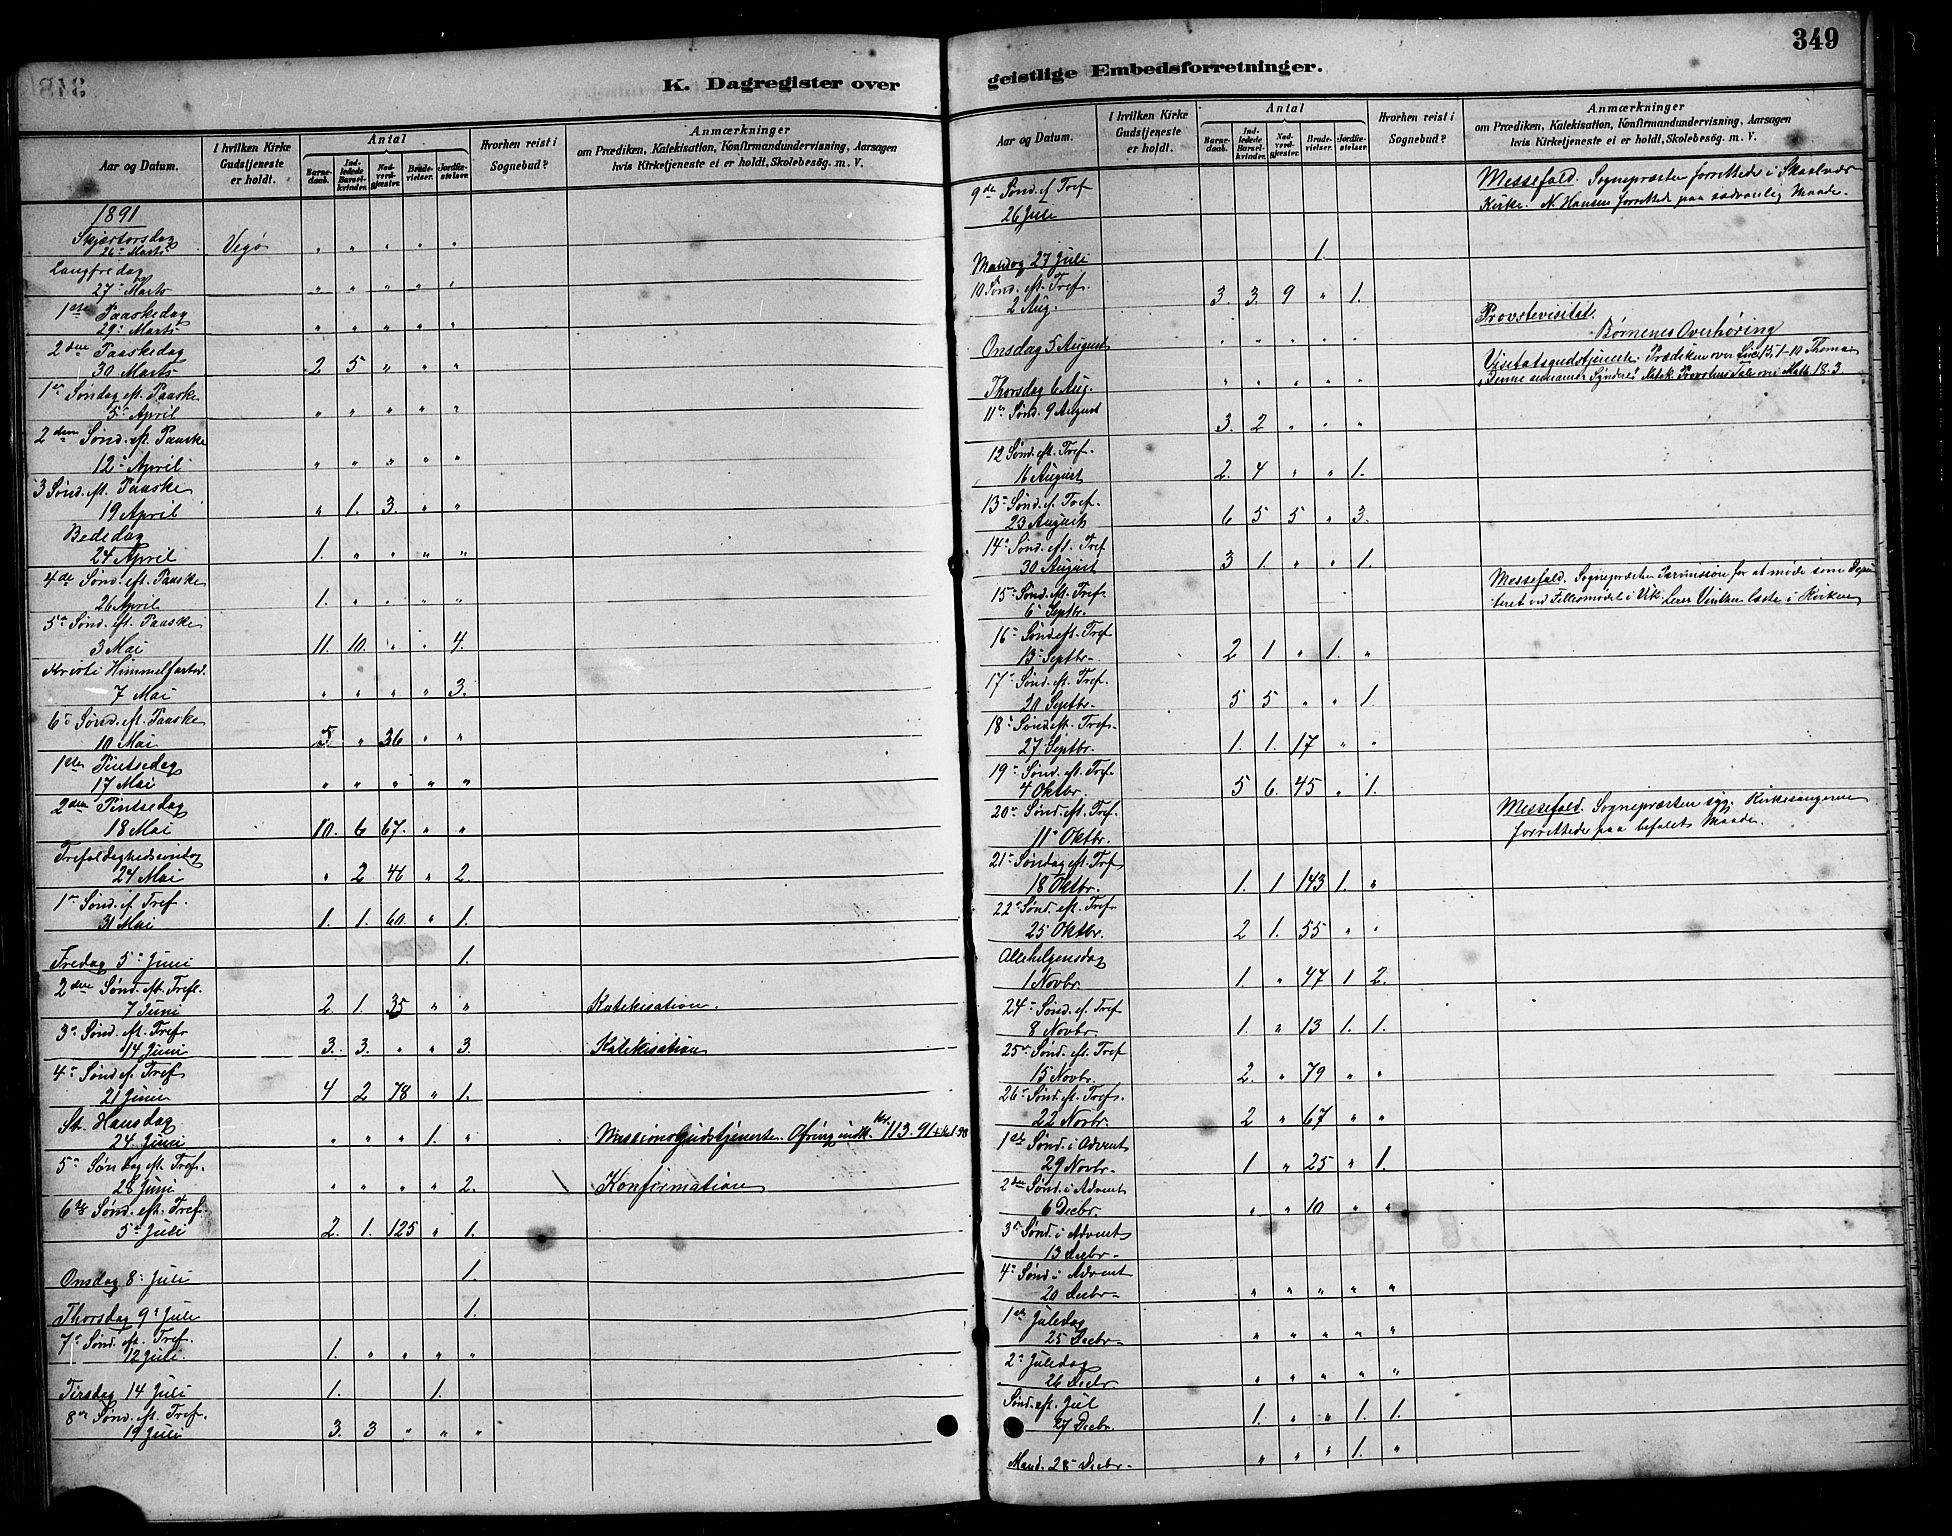 349
K. Dagregister over
Aar og Datum.
I hvilken Kirke Gudstjeneste er holdt.
Antal
Barne-daab.
Ind-ledede Barsel-kvinder.
Nad-verd-gjester.
Brude-vielser.
Jordfæ-stelser.
Hvorhen reist i Sognebud?
Anmærkninger
om Prædiken, Katekisation, Konfirmandundervisning, Aarsagen
hvis Kirketjeneste ei er holdt, Skolebesög. m. V.
1891
Skjærtorsdag
26. Marts Vegø " " " " "
Langfredag
27. Marts " " " " "
1ste Paaskedag
29. Marts " " " " "
2den Paaskedag
30 Marts 2 5 " " "
1ste Søndag eft. Paaske
5. April " " " " "
2den Sønd. eft. Paaske
12. April " " " " "
3 Sønd. eft. Paaske
19 April " 1. 3. " "
Bededag
24 April 1. " " " "
4de Sønd. eft. Paaske
26 April 1. " " " "
5te Sønd. eft. Paaske
3 Mai 11. 10. " " 4.
Kristi Himmelfartsd.
7 Mai " " " " 3.
6te Sønd. eft. Paaske
10 Mai 5 " 36 " "
1ste Pintsedag
17 Mai " " " " "
2den Pintsedag
18 Mai 10. 6 67. " "
Trefoldighedssøndag
24 Mai " 2 46 " 2.
1ste Sønd. e. Tref.
31 Mai 1. 1. 60. " 1.
Fredag 5. Juni 1.
2den Sønd. eft. Tref.
7 Juni 2. 1. 35 " " Katekisation.
3die Sønd. eft. Tref.
14 Juni 3. 3. " " 3. Katekisation
4de Sønd. ef. Tref
21 Juni 4 2 78 " 1.
St. Hansdag
24 Juni " " " 1. " Missionsgudstjeneste. Ofring indk. Kr. 113.91
5te Søndag eft. Tref.
28 Juni " " " " 2. Konfirmation
6te Sønd. eft. Tref.
5. Juli 2. 1. 125 " 1.
Onsdag 8. Juli 1.
Thorsdag 9. Juli 1.
7de Sønd. eft. Tref.
12 Juli. 1. " " " "
Tirsdag 14 Juli 1. 1.
8de Sønd. eft. Tref.
19 Juli 3. 3 " " "
geistlige Embedsforretninger.
Aar og Datum.
I hvilken Kirke Gudstjeneste er holdt.
Antal
Barne-daab.
Ind-ledede Barsel-kvinder.
Nad-verd-gjester.
Brude-vielser.
Jordfæ-stelser.
Hvorhen reist i Sognebud?
Anmærkninger
om Prædiken, Katekisation, Konfirmandundervisning, Aarsagen
hvis Kirketjeneste ei er holdt, Skolebesög. m. V.
9de Sønd. ef. Tref
26 Juli
Messefald. Sognepræsten forrettede i Skaalvær
Kirke. N. Hansen forrettede paa sædvanlig Maade.
Mandag 27 Juli 1.
10 Sønd. eft. Tref.
2 Aug. 3 3. 9 " 1.
Provstevisitat.
Børnenes Overhøring
Onsdag 5 August " " " " "
Visitatsgudstjeneste. Prædiken over Luc 15, 1-10
Thorsdag 6 Aug. " " " " "
"Denne annamer Syndere" Provstens Tale over Math. 18. 3
11te Sønd. 9 August
3. 2 " " "
12 Sønd. eft. Tref.
16 August 2. 4 " " 1.
13de Sønd. ef. Tref.
23 August 6 5 5 " 3.
14de Sønd. eft. Tref
30 August 3 1. " " 1.
15de Sønd. eft. Tref.
6. Septbr.
Messefald. Sognepræsten for at møde som Depu
teret ved Fellesmødet i Vik. Lærer læste i Kirken
16de Sønd eft. Tref
13. Septbr. 2 1 " 1. "
17de Sønd. eft. Tref.
20 Septbr. 5 5 " " 1.
18de Sønd eft. Tref.
27 Septbr. 1. 1. 17 " "
19de Sønd. eft. Tref.
4 Oktbr. 5 6. 45 " 1.
20de Sønd. eft. Tref.
11. Oktbr.
Messefald. Sognepræsten syg. Kirkesangeren
forrettede paa befalet Maade.
21de Søndag eft. Tref
18 Oktbr. 1. 1 143 1. "
22de Sønd. eft. Tref
25 Oktbr. 2 1. 55 " "
Allehelgensdag
1 Novbr 1. " 47 1 2.
24de Sønd. ef. Tref
8 Novbr. 1. " 13 1. 1.
25de Sønd. eft. Tref
15 Novbr. 2. " 79 " "
26de Sønd. eft. Tref.
22 Novbr. 2 " 67 " "
1ste Sønd. i Advent
29 Novbr. 1 " 25 " 1.
2den Sønd. i Advent
6 Decbr. " " 10 " "
3die Sønd. i Advent
13 Decbr.
4de Sønd. i Advent
20 Decbr. " " " " "
1ste Juledag
25 Decbr. " " " " "
2den Juledag
26 Decbr. " " " " "
Sønd. eft. Jul
27 Decbr. 1. " " 1. 1.
Mand. 28 Decbr. " " " 1. "